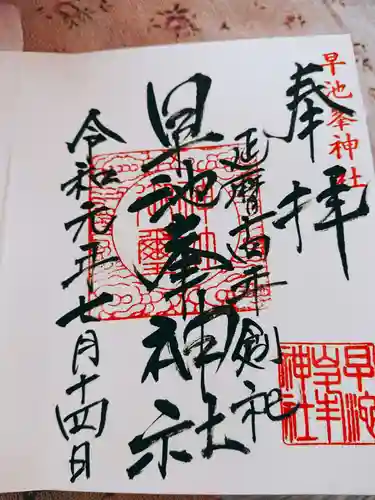 早池峯神社
奉拝
延暦廿年創祀
早池峯神社
令和元年七月十四日
早池峯神社